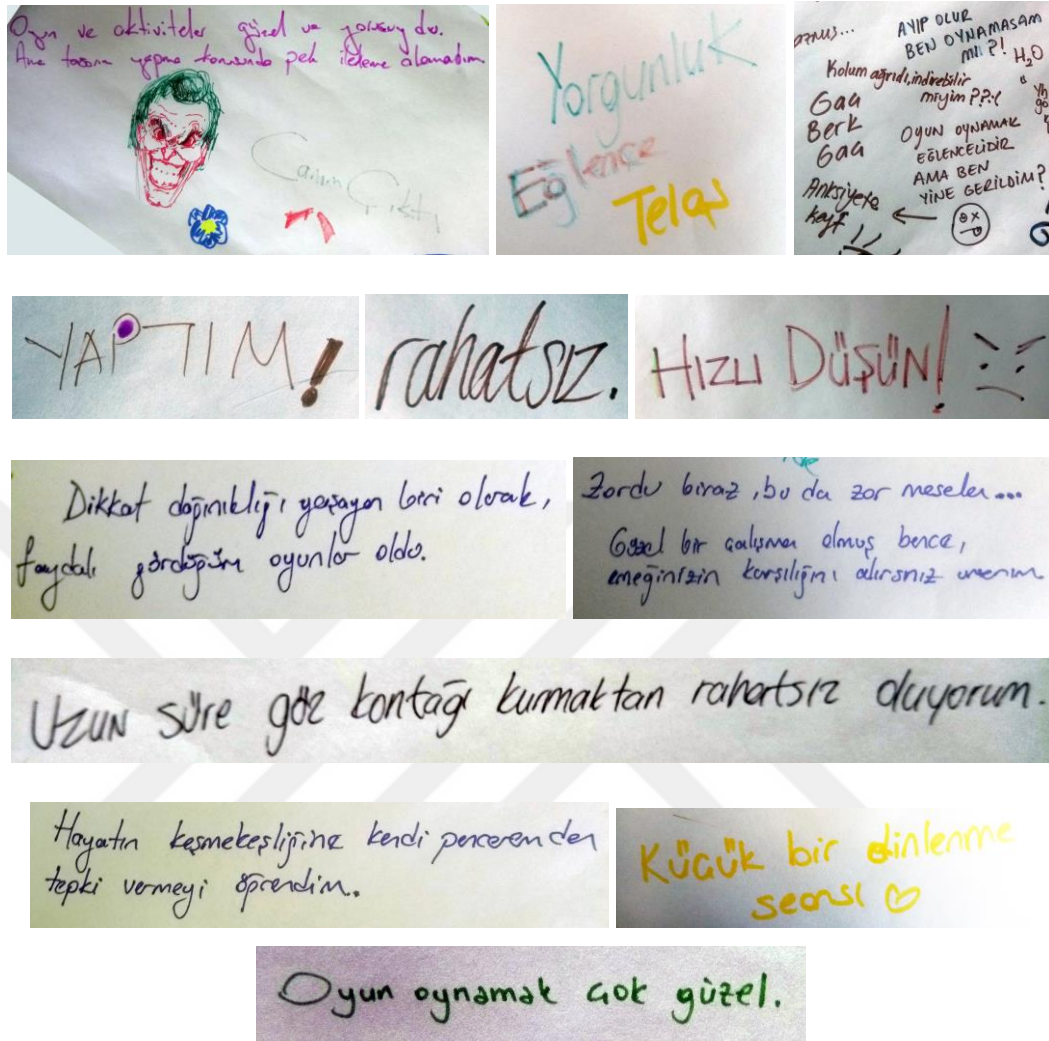 Oyun ve aktiviteler güzel ve yorucuydu.
Ama tasarım yapma konusunda pek ilham alamadım.
Canım
Çıktı
Yorgunluk
Eğlence
Telaş
AYIP OLUR
BEN OYNAMASAM
MI?!
H₂O
Kolum ağrıdı, indirebilir
miyim???:(
Gaa
Berk
Gaa
OYUN OYNAMAK
EĞLENCELİDİR
AMA BEN
YİNE GERİLDİM?
Anksiyete
keyf
YAPTIM!
rahatsız.
HIZLI DÜŞÜN! :(
Dikkat dağınıklığı yaşayan biri olarak,
faydalı gördüğüm oyunlar oldu.
Zordu biraz, bu da zor meseleler...
Güzel bir çalışma olmuş bence,
emeğinizin karşılığını alırsınız umarım.
Uzun süre göz kontağı kurmaktan rahatsız oluyorum.
Hayatın keşmekeşliğine kendi pencerenden
tepki vermeyi öğrendim.
Küçük bir dinlenme
seansı ♡
Oyun oynamak çok güzel.